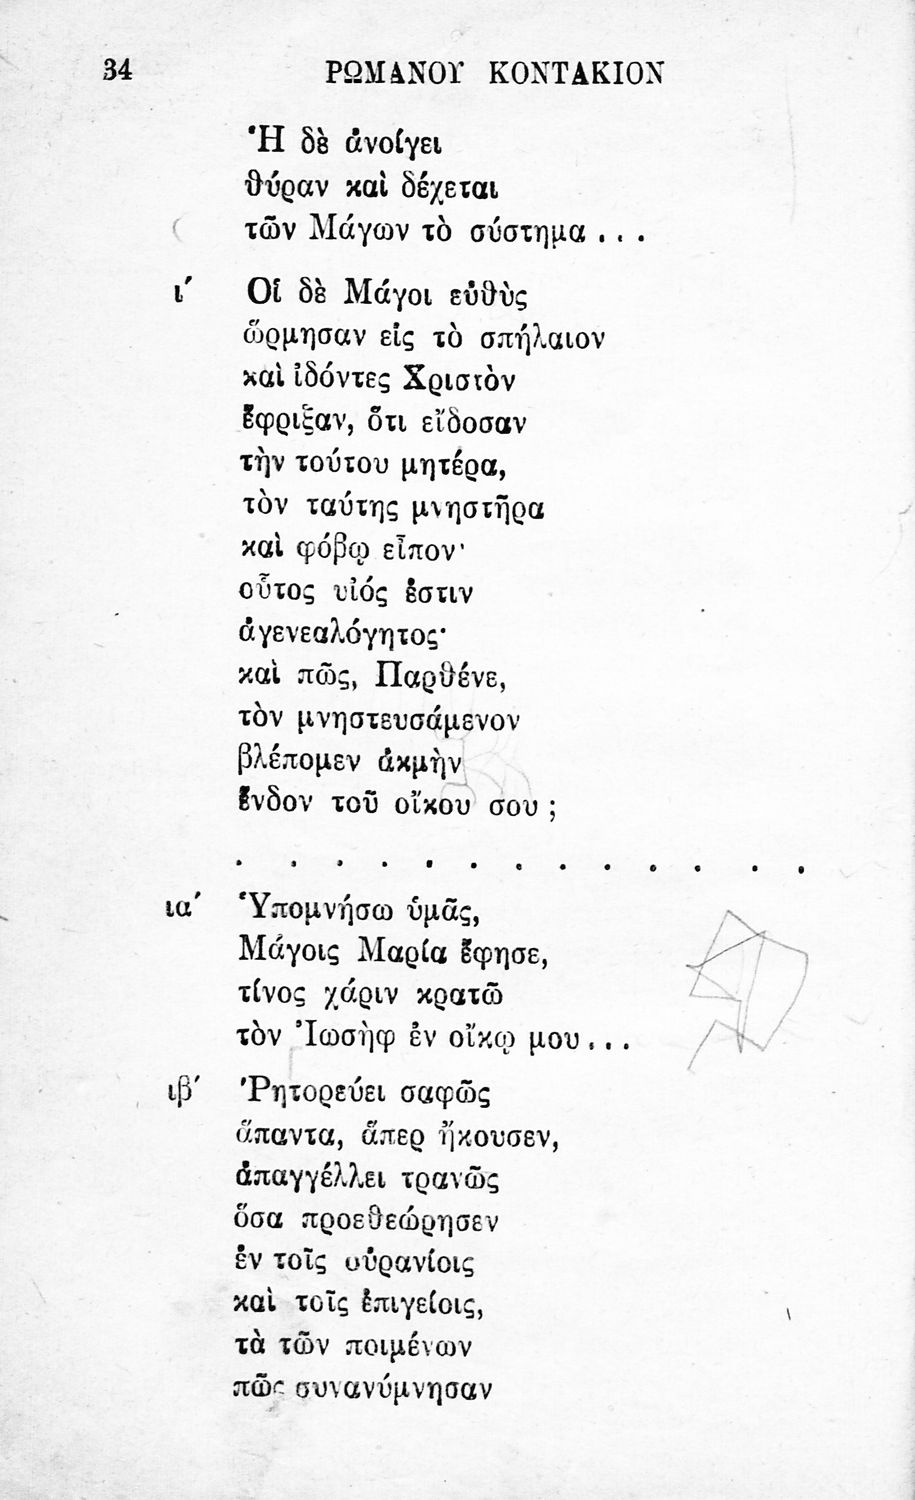 34 ΡΩΜΑΝΟΥ ΚΟΝΤΑΚΙΟΝ
Ἡ δὲ ἀνοίγει
θύραν καὶ δέχεται
τῶν Μάγων τὸ σύστημα . . .
ι΄ Οἱ δὲ Μάγοι εὐθὺς
ὥρμησαν εἰς τὸ σπήλαιον
καὶ ἰδόντες Χριστὸν
ἔφριξαν, ὅτι εἴδοσαν
τὴν τούτου μητέρα,
τὸν ταύτης μνηστῆρα
καὶ φόβῳ εἶπον·
οὗτος υἱός ἐστιν
ἀγενεαλόγητος·
καὶ πῶς, Παρθένε,
τὸν μνηστευσάμενον
βλέπομεν ἀκμὴν
ἔνδον τοῦ οἴκου σου ;
. . . . . . . . . . . . . .
ια΄ Ὑπομνήσω ὑμᾶς,
Μάγοις Μαρία ἔφησε,
τίνος χάριν κρατῶ
τὸν Ἰωσὴφ ἐν οἴκῳ μου . . .
ιβ΄ Ῥητορεύει σαφῶς
ἅπαντα, ἅπερ ἤκουσεν,
ἀπαγγέλλει τρανῶς
ὅσα προεθεώρησεν
ἐν τοῖς οὐρανίοις
καὶ τοῖς ἐπιγείοις,
τὰ τῶν ποιμένων
πῶς συνανύμνησαν